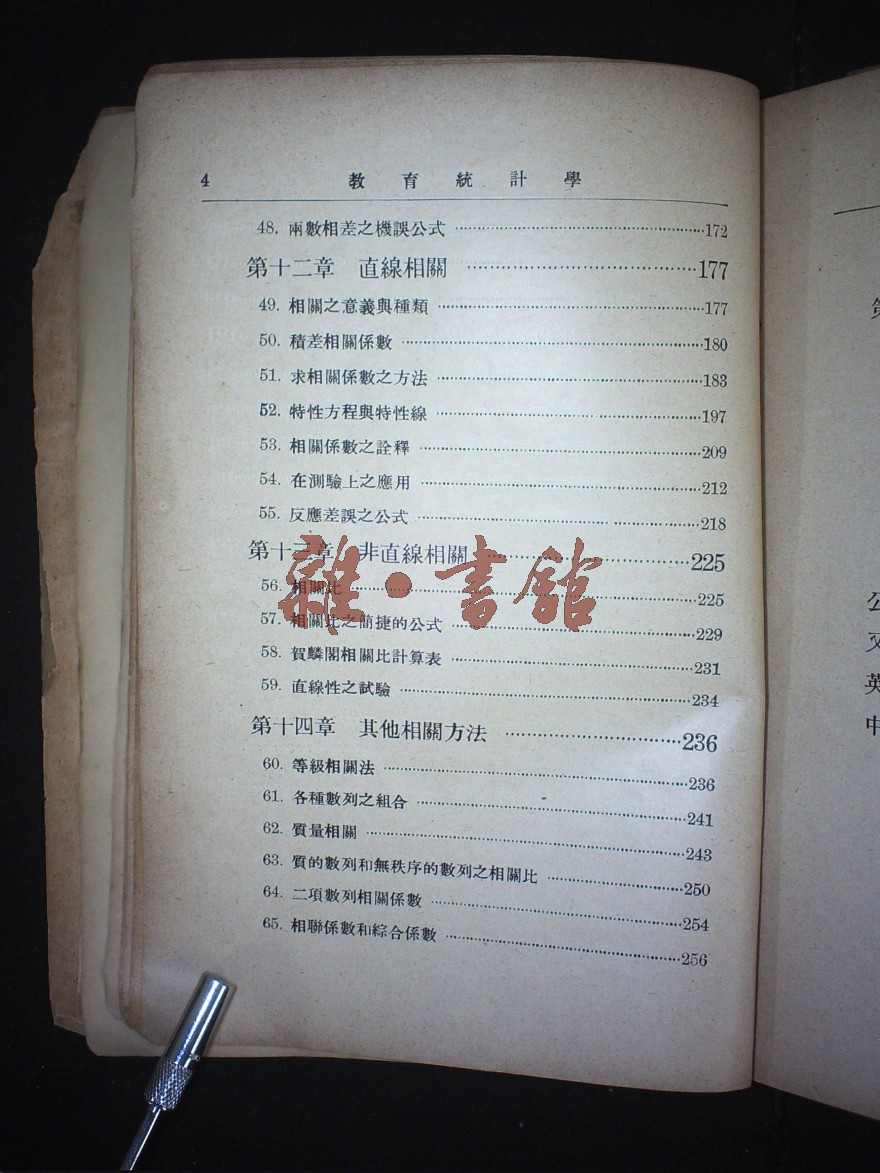 4 教育統計學
48. 兩數相差之機誤公式 172
第十二章 直線相關 177
49. 相關之意義與種類 177
50. 積差相關係數 180
51. 求相關係數之方法 183
52. 特性方程與特性線 197
53. 相關係數之詮釋 209
54. 在測驗上之應用 212
55. 反應差誤之公式 218
第十三章 非直線相關 225
56. 相關比 225
57. 相關比之簡捷的公式 229
58. 賀麟閣相關比計算表 231
59. 直線性之試驗 234
第十四章 其他相關方法 236
60. 等級相關法 236
61. 各種數列之組合 241
62. 質量相關 243
63. 質的數列和無秩序的數列之相關比 250
64. 二項數列相關係數 254
65. 相聯係數和綜合係數 256
雜·書館
公
英
中